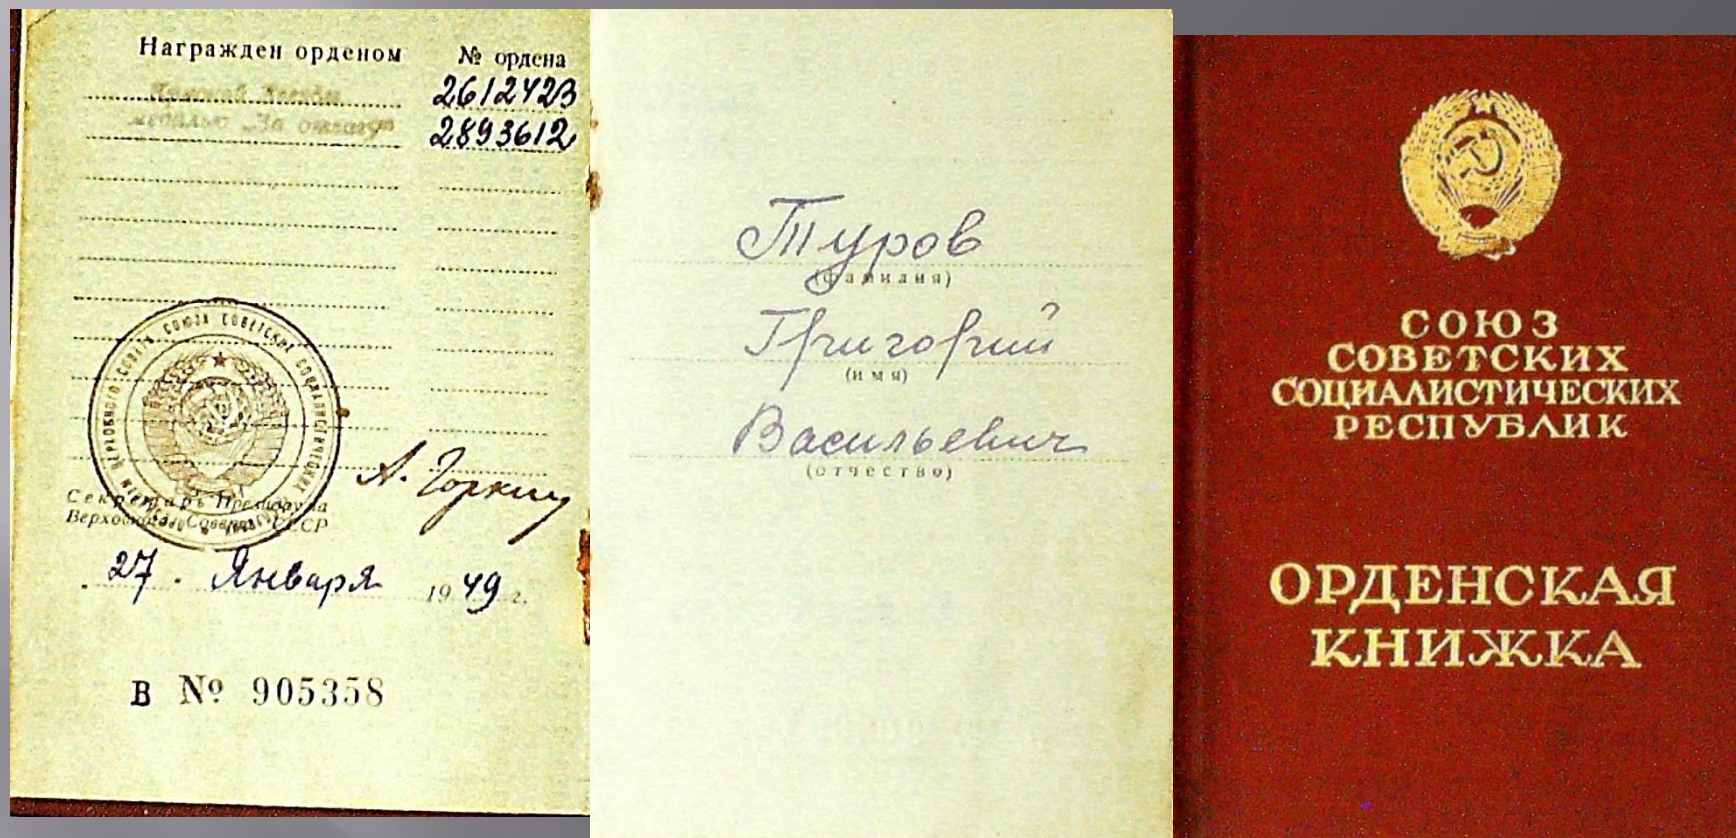 Награжден орденом № ордена
Красной Звезды 2612423
медалью „За отвагу“ 2893612
ВЕРХОВНОГО СОВЕТА СОЮЗА СОВЕТСКИХ СОЦИАЛИСТИЧЕСКИХ
Секретарь Президиума
Верховного Совета СССР
А. Горкин
27. Января 1949 г.
В № 905358
Туров
(фамилия)
Григорий
(имя)
Васильевич
(отчество)
СОЮЗ
СОВЕТСКИХ
СОЦИАЛИСТИЧЕСКИХ
РЕСПУБЛИК
ОРДЕНСКАЯ
КНИЖКА